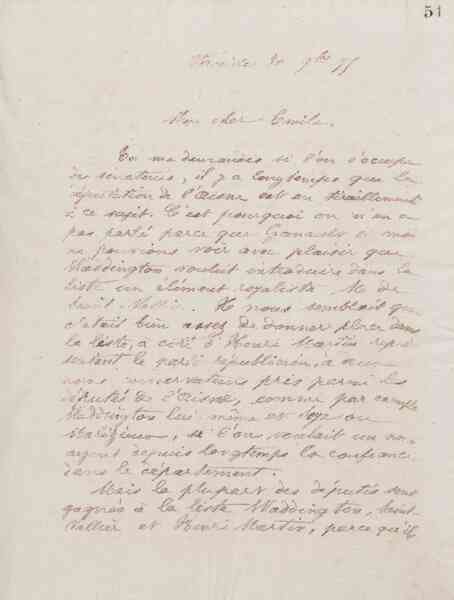 51
20 9bre 75
Mon cher Emile.
Tu me demandes si l'on s'occupe
des sénatores, il y a longtemps que la
députation de l'Aisne est en tiraillement
à ce sujet. C'est pourquoi on n'en a
pas parlé parce que et moi
ne pouvions voir avec plaisir que
Waddington voulut introduire dans la
liste un élément royaliste M. de
Saint-Vallier. Il nous semblait que
c'était bien assez de donner place dans
la liste, à coté d'Henri Martin repré
sentant le parti républicain, à
noms conservateurs pris parmi les
députés de l'Aisne, comme par exemple
Waddington lui même et ou
Malézieux, si l'on voulait un nom
ayant depuis longtemps la confiance
dans le département.
Mais la plupart des députés sont
gagnés à la liste Waddington, Saint
Vallier et Henri Martin, parce qu'ils